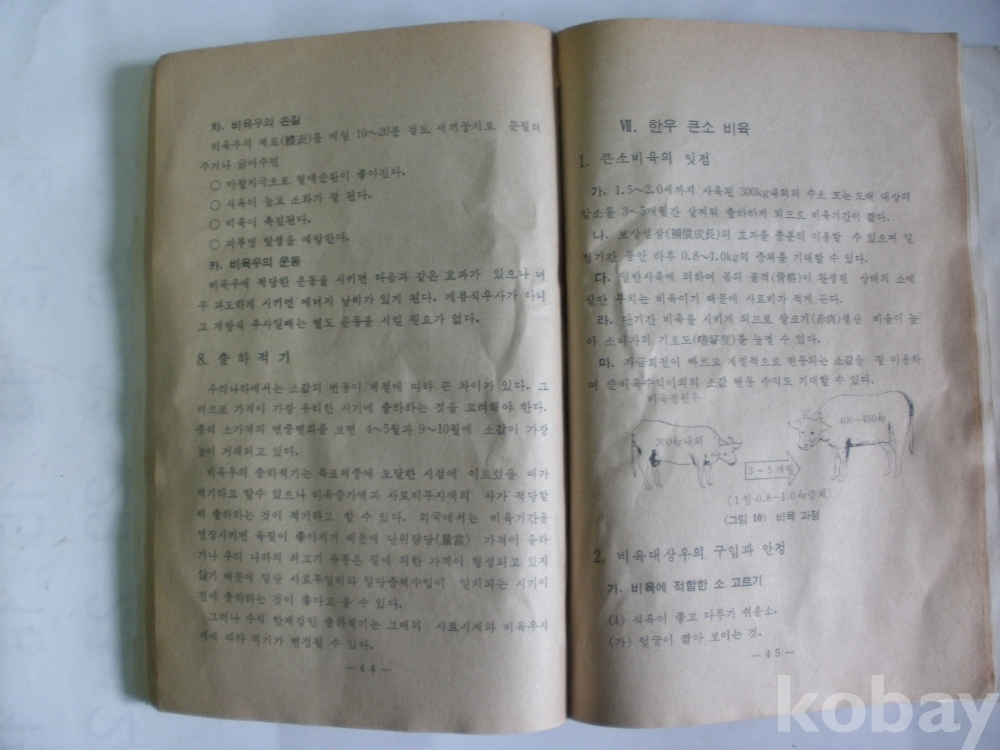 차. 비육우의 손질
비육우의 체표(體表)를 매일 10~20분 정도 새끼뭉치로 문질러
주거나 긁어주면
○ 마찰자극으로 혈액순환이 좋아진다.
○ 식욕이 늘고 소화가 잘 된다.
○ 비육이 촉진된다.
○ 피부병 발생을 예방한다.
카. 비육우의 운동
비육우에 적당한 운동을 시키면 다음과 같은 효과가 있으나 너
무 과도하게 시키면 에너지 낭비가 있게 된다. 계류식우사가 아니
고 개방식 우사일때는 별도 운동을 시킬 필요가 없다.
8. 출하적기
우리나라에서는 소값의 변동이 계절에 따라 큰 차이가 있다. 그
러므로 가격이 가장 유리한 시기에 출하하는 것을 고려해야 한다.
종래 소가격의 연중변화를 보면 4~5월과 9~10월에 소값이 가장
높이 거래되고 있다.
비육우의 출하적기는 목표체중에 도달한 시점에 이르렀을 때가
적기라고 할수 있으나 비육증가액과 사료비투자액의 차가 적당할
때 출하하는 것이 적기라고 할 수 있다. 외국에서는 비육기간을
연장시키면 육질이 좋아지기 때문에 단위량당(量當) 가격이 올라
가나 우리 나라의 쇠고기 유통은 질에 의한 가격이 형성되고 있지
않기 때문에 일당 사료투입비와 일당증체수입이 일치되는 시기이
전에 출하하는 것이 좋다고 볼 수 있다.
그러나 수익 한계점인 출하적기는 그때의 사료시세와 비육우시
세에 따라 적기가 변경될 수 있다.
—44—
Ⅶ. 한우 큰소 비육
1. 큰소비육의 잇점
가. 1.5~2.0세까지 사육된 300kg내외의 수소 또는 도태 대상의
암소를 3~5개월간 살찌워 출하하게 되므로 비육기간이 짧다.
나. 보상성장(補償成長)의 효과를 충분히 이용할 수 있으며 일
정기간 동안 하루 0.8~1.0kg의 증체를 기대할 수 있다.
다. 일반사육에 의하여 몸의 골격(骨格)이 완성된 상태의 소에
살만 붙이는 비육이기 때문에 사료비가 적게 든다.
라. 단기간 비육을 시키게 되므로 살코기(赤肉)생산 비율이 높
아 소비자의 기호도(嗜好度)를 높일 수 있다.
마. 자금회전이 빠르고 계절적으로 변동되는 소값을 잘 이용하
여 순비육수익이외의 소값 변동 수익도 기대할 수 있다.
비육전원우
300kg 내외
400~450kg
3~5개월
(1일 0.8~1.0kg증체)
(그림 10) 비육 과정
2. 비육대상우의 구입과 안정
가. 비육에 적합한 소 고르기
(1) 식욕이 좋고 다루기 쉬운소.
(가) 얼굴이 짧아 보이는 것.
—45—
kobay